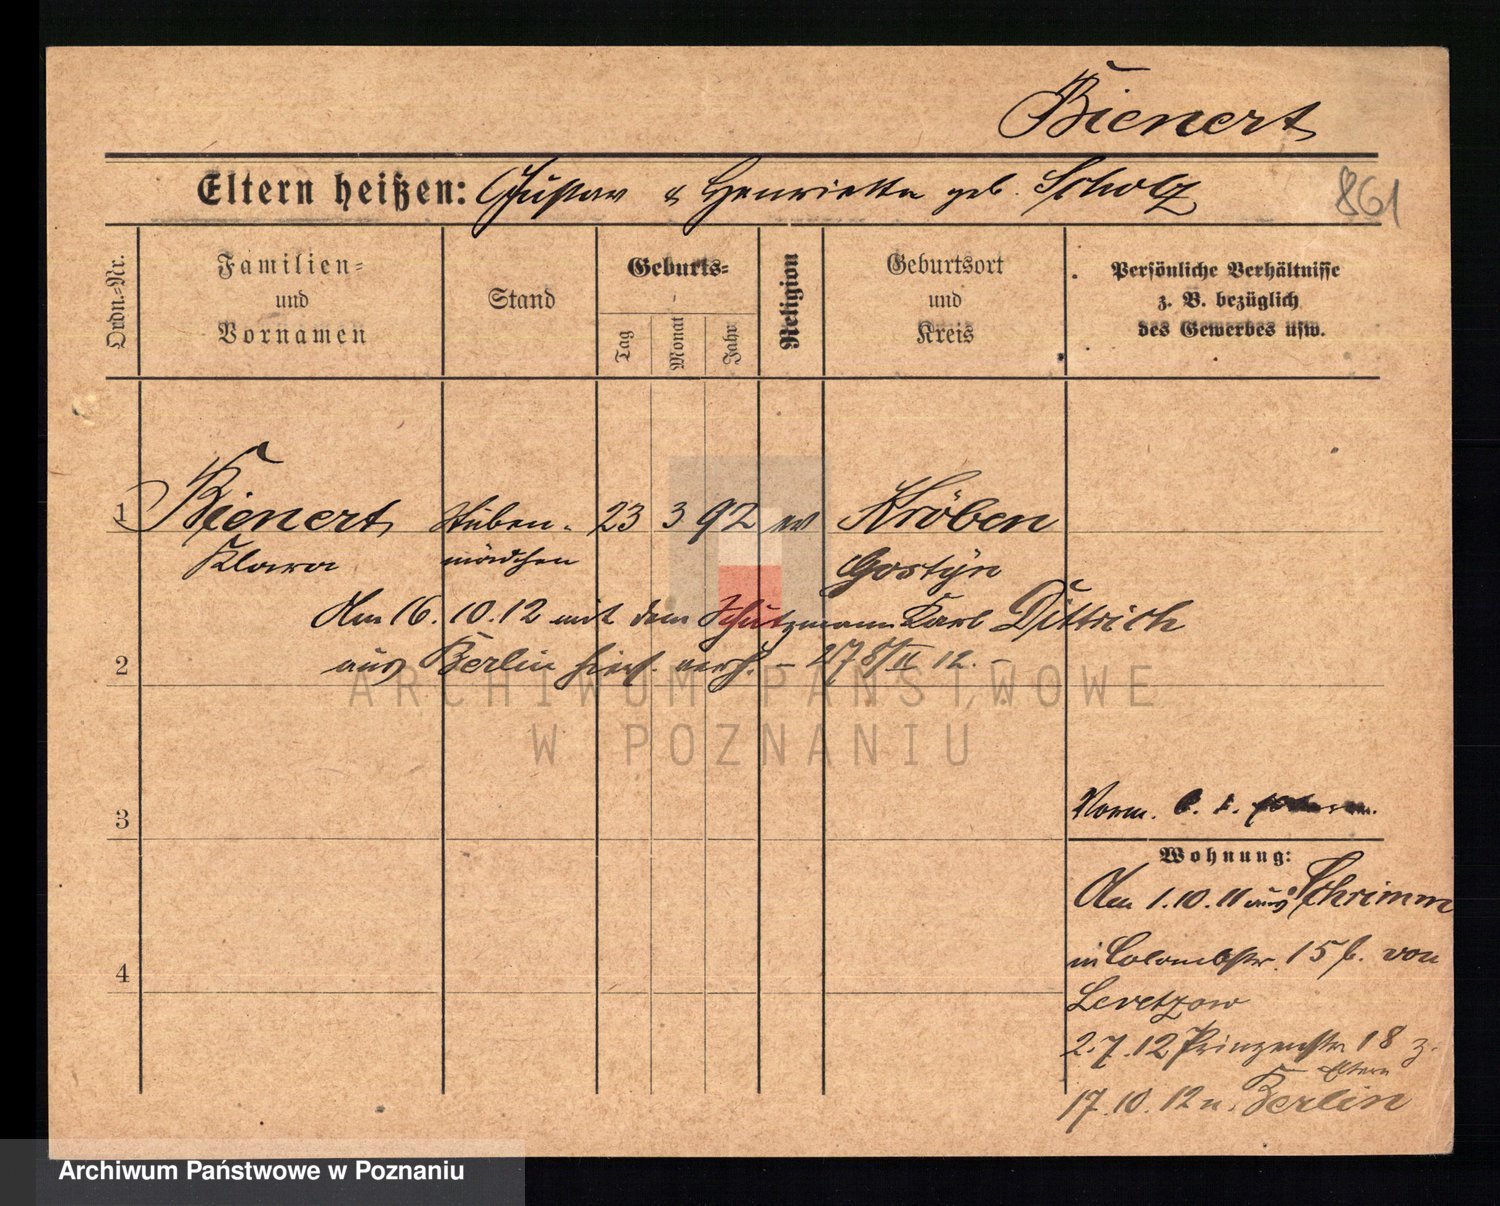 Bienert
Eltern heißen: Gustav & Henriette geb. Scholz
861
Ordn.=Nr.
Familien=
und
Vornamen
Stand
Geburts=
Tag
Monat
Jahr
Religion
Geburtsort
und
Kreis
Persönliche Verhältnisse
z. B. bezüglich
des Gewerbes usw.
1 Bienert Stuben- 23 3 92 ev Kröben
Klara mädchen Gostyn
Am 16.10.12 mit dem Schutzmann Karl Dittrich
2 aus Berlin hier verh. - 12. -
3
Vorm.
Wohnung:
Am 1.10.11 aus Schrimm
in Colombstr. 15 b. von
4
Levetzow
2.7.12 Prinzenstr 18 z.
Eltern
17.10.12 n. Berlin
ARCHIWUM PAŃSTWOWE
W POZNANIU
Archiwum Państwowe w Poznaniu